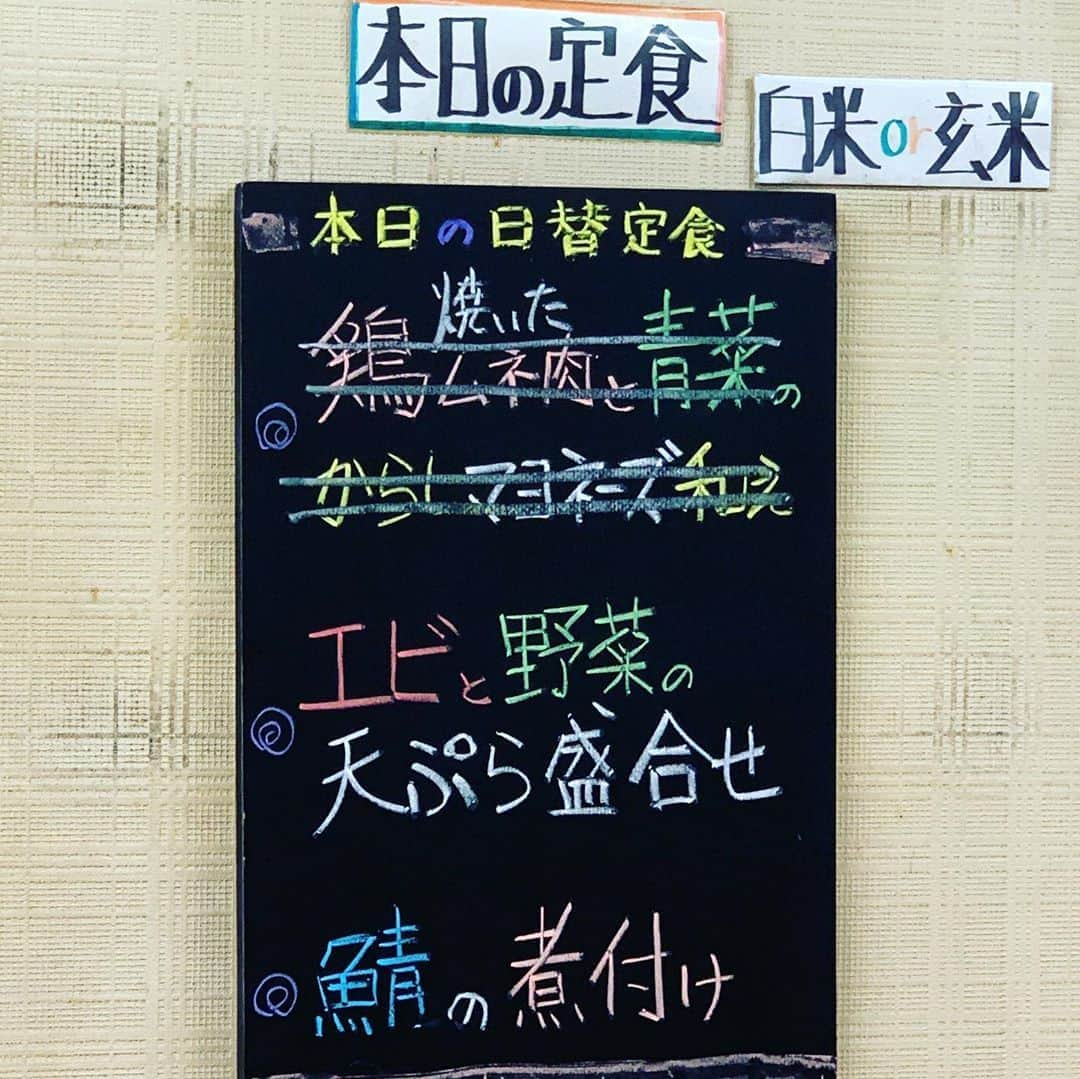 本日の定食
白米or玄米
本日の日替定食
焼いた
鶏ムネ肉と青菜の
からしマヨネーズ和え
エビと野菜の
天ぷら盛合せ
鯖の煮付け